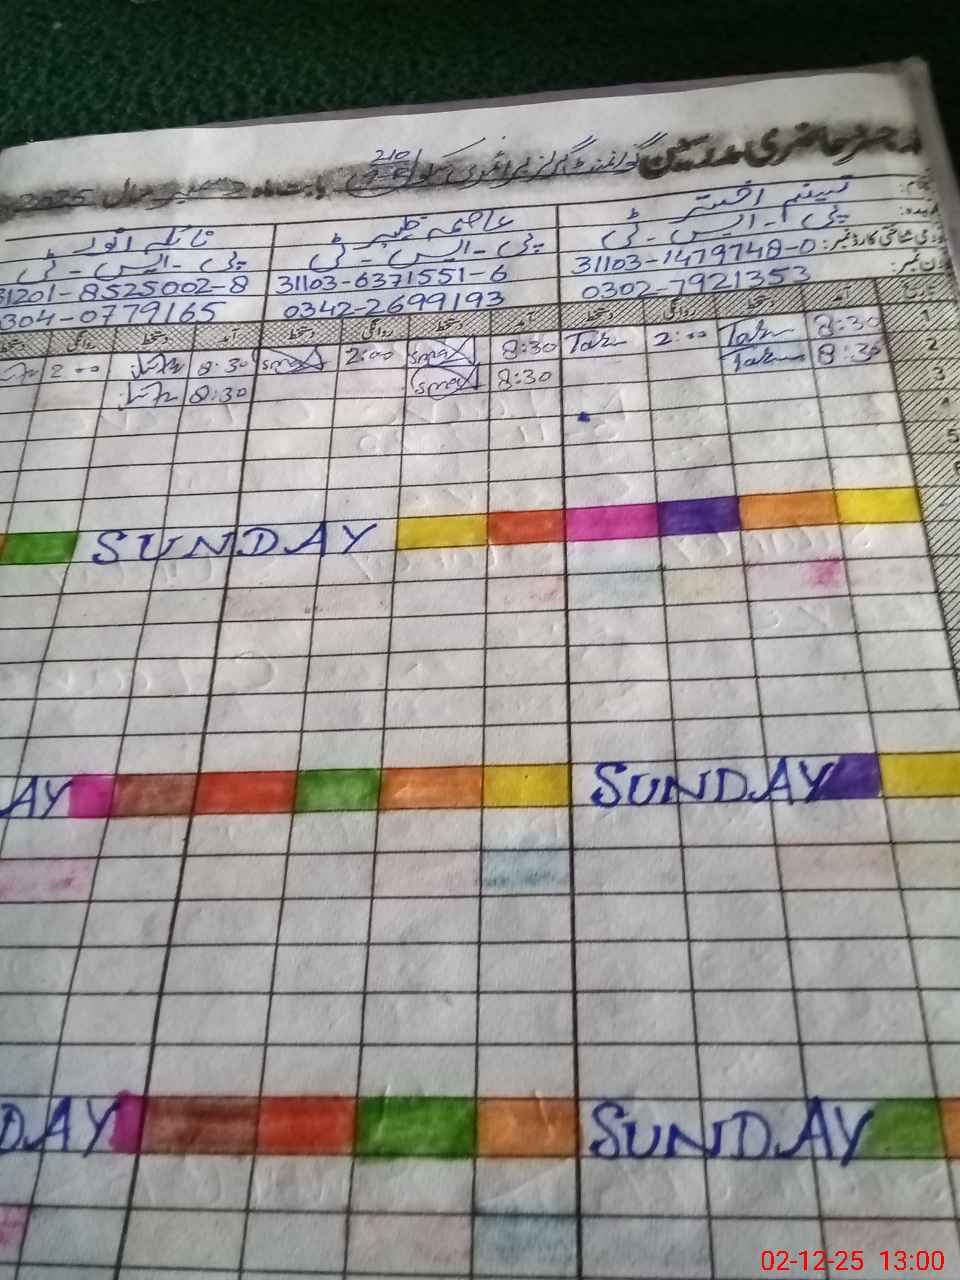 رجسٹر حاضری مدرسین گورنمنٹ گرلز پرائمری سکول بابت ماہ دسمبر سال 2025
نام:
تسنیم اختر
عاصمہ طیبہ
نائلہ انور
عہدہ:
پی-ایس-ٹی
پی-ایس-ٹی
پی-ایس-ٹی
قومی شناختی کارڈ نمبر:
31103-1479748-0
31103-6371551-6
31201-8525002-8
فون نمبر:
0302-7921353
0342-2699193
304-0779165
آمد دستخط روانگی دستخط آمد دستخط روانگی دستخط آمد دستخط روانگی دستخط
1 8:30 2:00 8:30 2:00 8:30 2:00
2 8:30 8:30 8:30
3
4
5
SUNDAY
SUNDAY
AY
SUNDAY
DAY
02-12-25 13:00